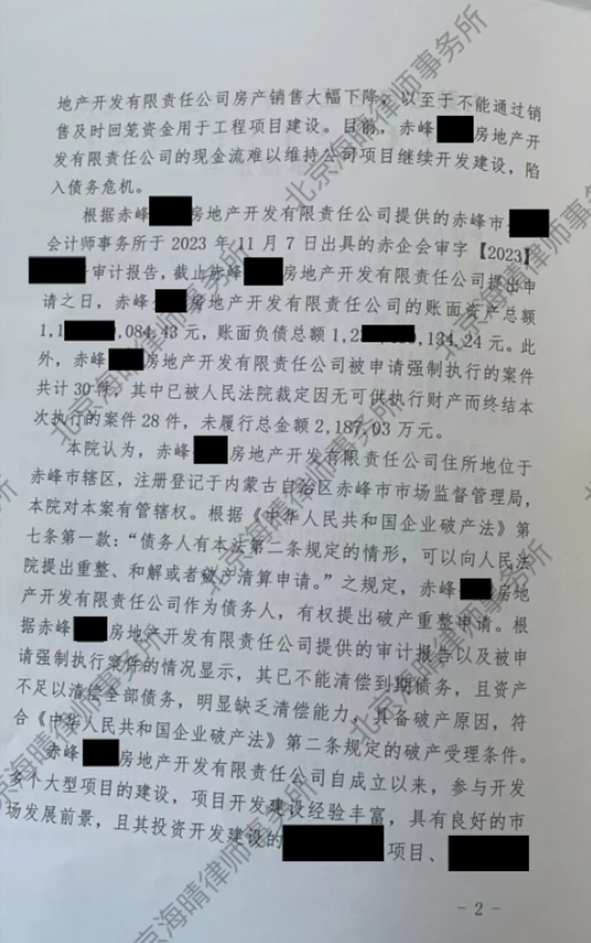 地产开发有限责任公司房产销售大幅下降，以至于不能通过销
售及时回笼资金用于工程项目建设。目前，赤峰房地产开
发有限责任公司的现金流难以维持公司项目继续开发建设，陷
入债务危机。
根据赤峰房地产开发有限责任公司提供的赤峰市
会计师事务所于2023年11月7日出具的赤企会审字【2023】
审计报告，截止赤峰房地产开发有限责任公司提出申
请之日，赤峰房地产开发有限责任公司的账面资产总额
1,1,084.43元，账面负债总额1,2,134.24元。此
外，赤峰房地产开发有限责任公司被申请强制执行的案件
共计30件，其中已被人民法院裁定因无可供执行财产而终结本
次执行的案件28件，未履行总金额2,187.03万元。
本院认为，赤峰房地产开发有限责任公司住所地位于
赤峰市辖区，注册登记于内蒙古自治区赤峰市市场监督管理局，
本院对本案有管辖权。根据《中华人民共和国企业破产法》第
七条第一款：“债务人有本法第二条规定的情形，可以向人民法
院提出重整、和解或者破产清算申请。”之规定，赤峰房地
产开发有限责任公司作为债务人，有权提出破产重整申请。根
据赤峰房地产开发有限责任公司提供的审计报告以及被申
请强制执行案件的情况显示，其已不能清偿到期债务，且资产
不足以清偿全部债务，明显缺乏清偿能力，具备破产原因，符
合《中华人民共和国企业破产法》第二条规定的破产受理条件。
赤峰房地产开发有限责任公司自成立以来，参与开发
多个大型项目的建设，项目开发建设经验丰富，具有良好的市
场发展前景，且其投资开发建设的项目、
- 2 -
北京海晴律师事务所
北京海晴律师事务所
北京海晴律师事务所
北京海晴律师事务所
北京海晴律师事务所
北京海晴律师事务所
北京海晴律师事务所